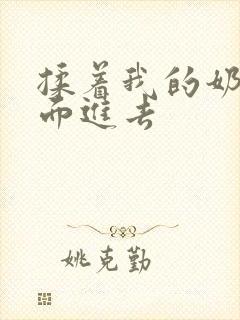 揉着我的奶
而进去
姚克勤